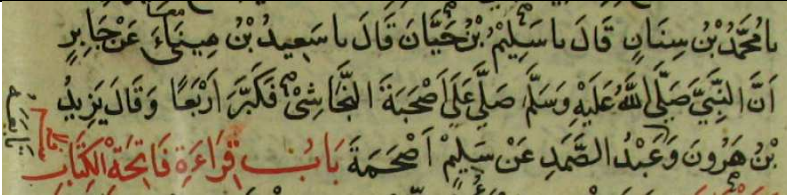 نا مُحَمَّدُ بْنُ سِنَانٍ قَالَ نا سَلِيمُ بْنُ حَيَّانَ قَالَ نا سَعِيدُ بْنُ مِينَاءَ عَنْ جَابِرٍ
اَنَّ النَّبِيَّ صَلَّى اللهُ عَلَيْهِ وَسَلَّمَ صَلَّى عَلَى اَصْحَمَةَ النَّجَاشِيِّ فَكَبَّرَ اَرْبَعًا وَقَالَ يَزِيدُ
بْنُ هَرُونَ وَعَبْدُ الصَّمَدِ عَنْ سَلِيمٍ اَصْحَمَةَ بَابُ قِرَاءَةِ فَاتِحَةِ الْكِتَابِ